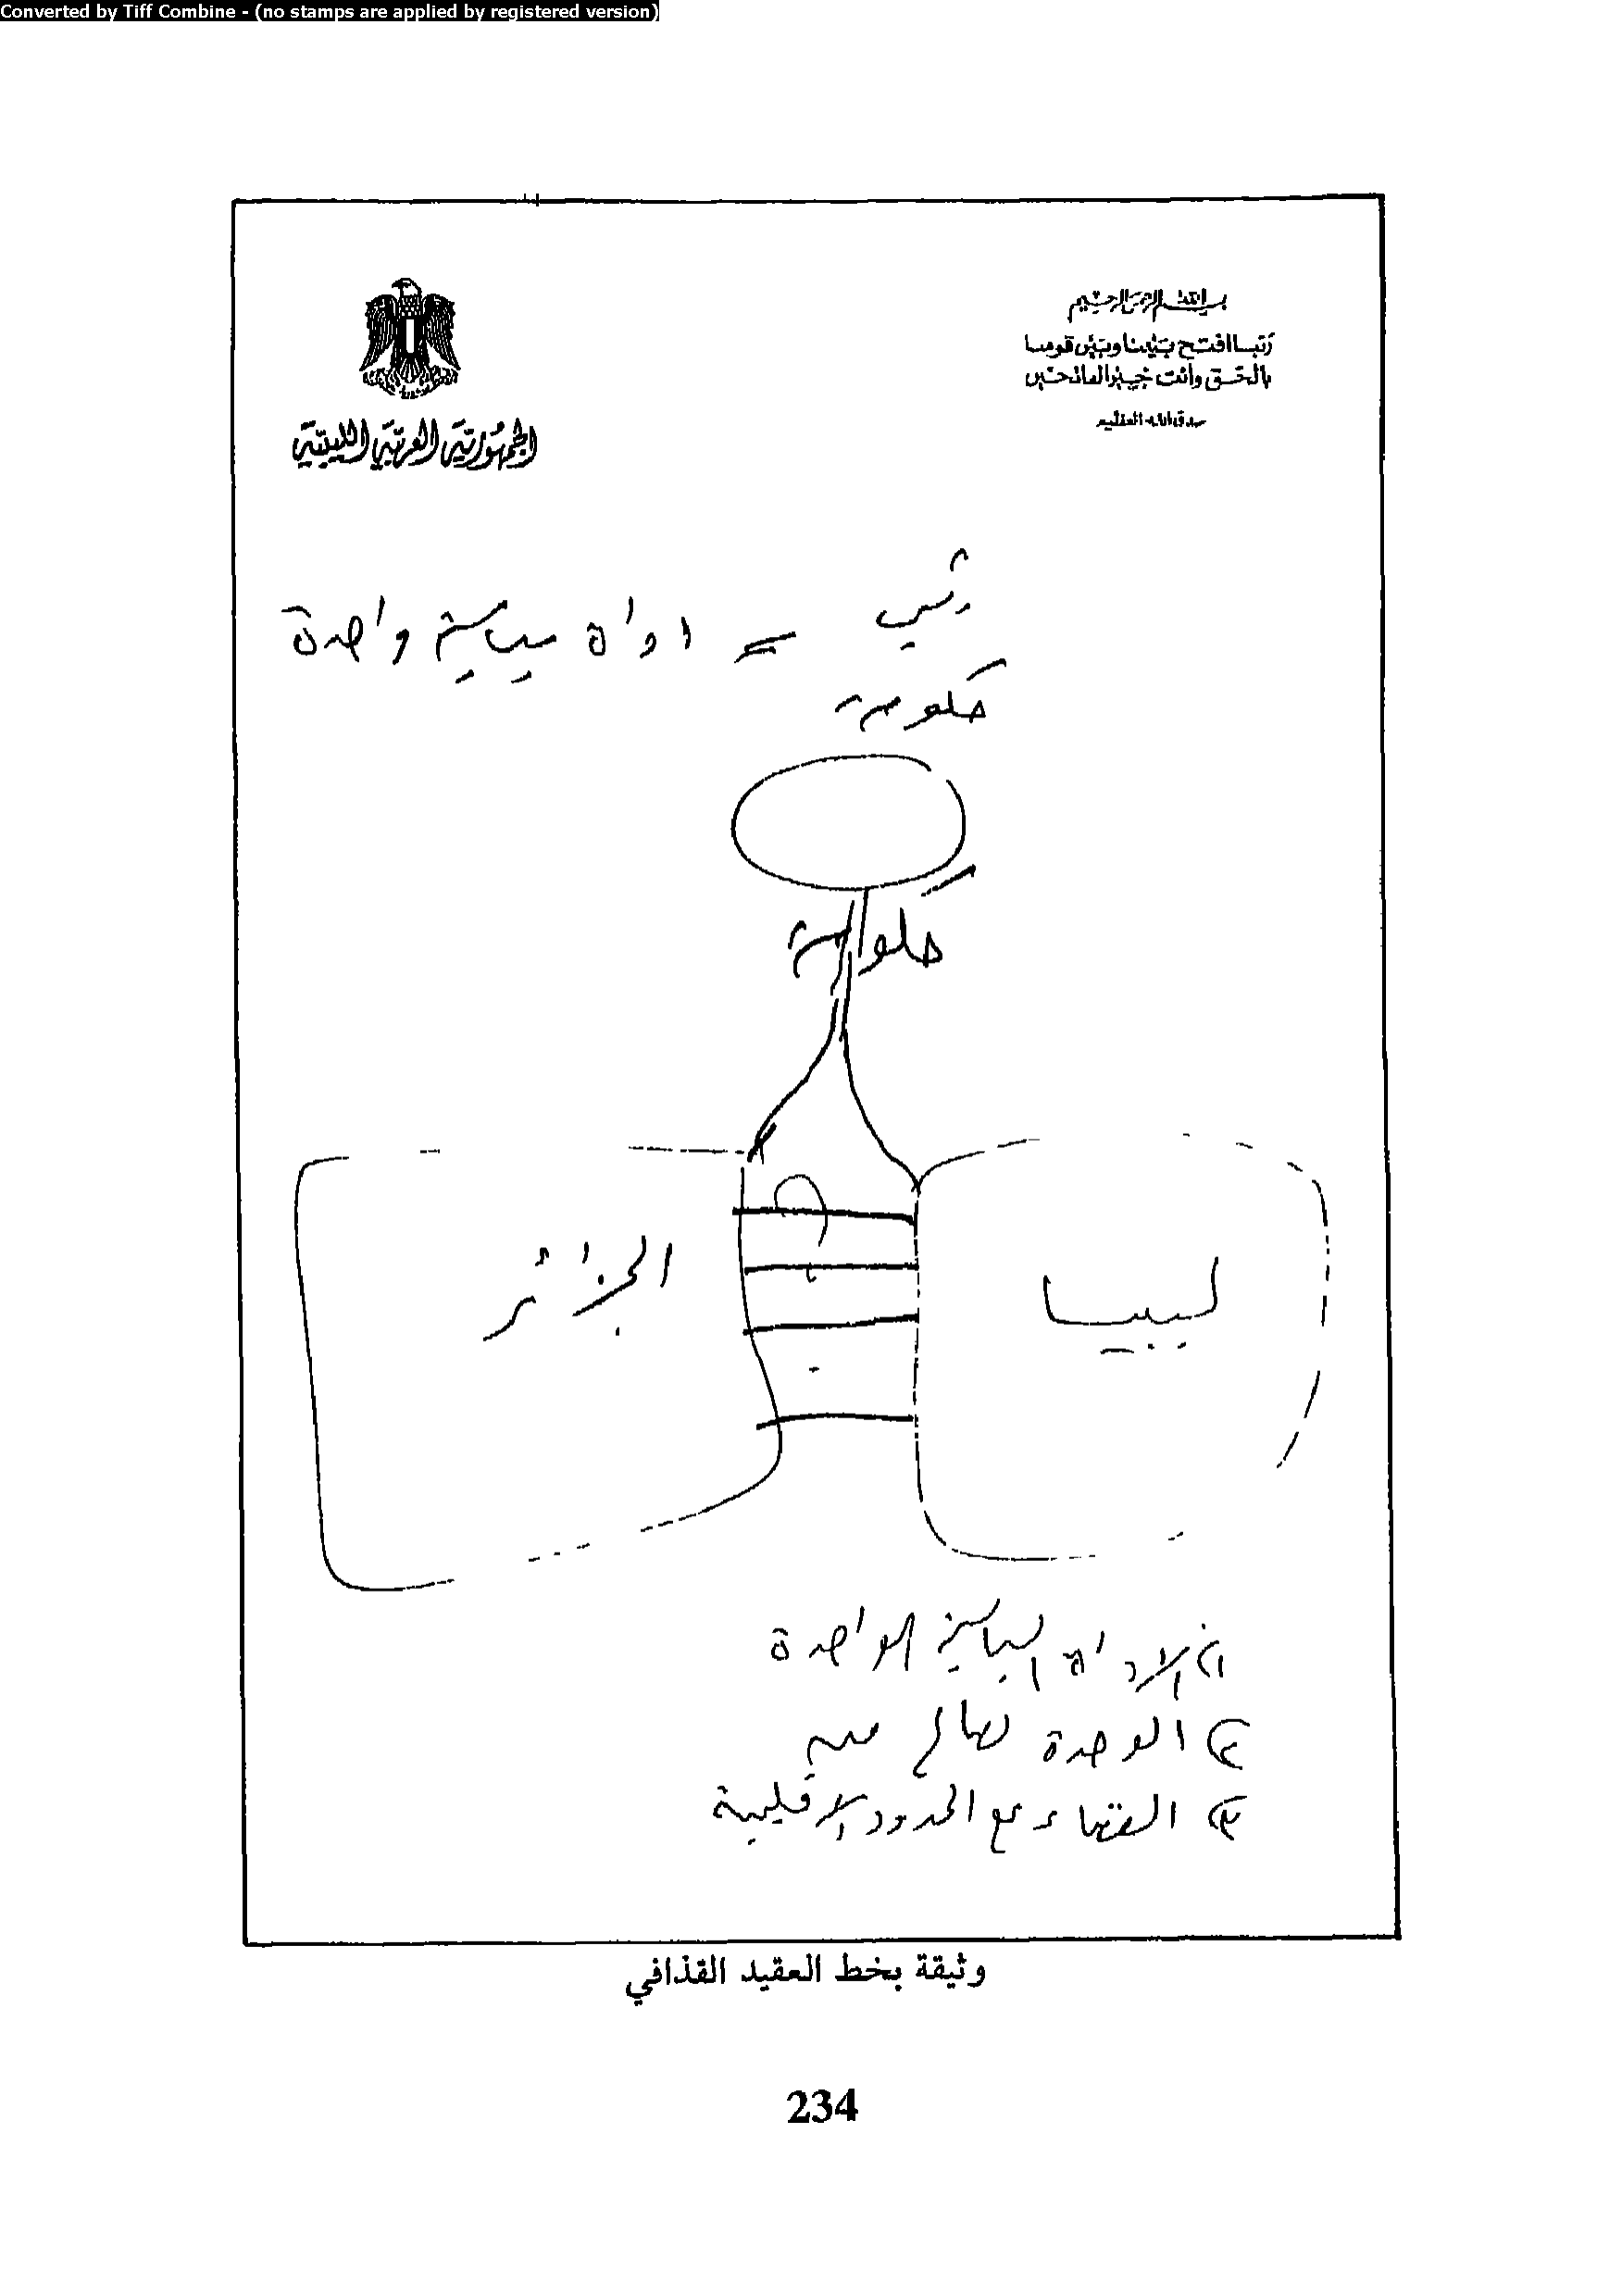 Converted by Tiff Combine - (no stamps are applied by registered version)
بسم الله الرحمن الرحيم
ربنا افتح بيننا وبين قومنا
بالحق وأنت خير الفاتحين
صدق الله العظيم
الجمهورية العربية الليبية
رئيس
= اداة سياسية واحدة
حكومة
حكومة
ليبيا
الجزائر
١) الاداة السياسية الواحدة
٢) الوحدة لصالح من
٣) القضاء على الحدود الاقليمية
وثيقة بخط العقيد القذافي
234